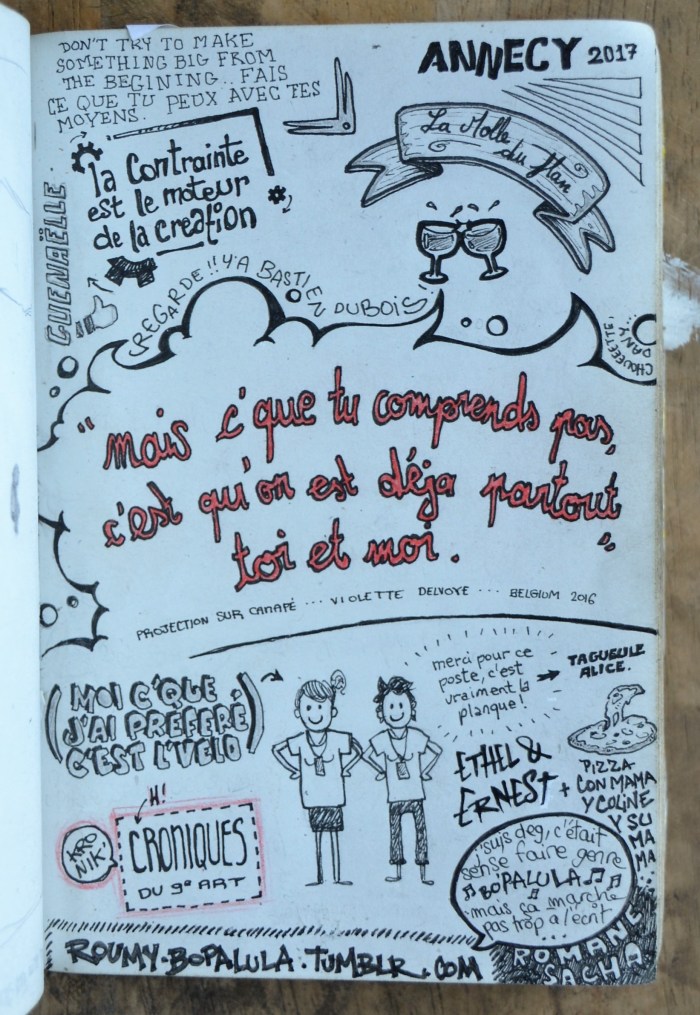 DON'T TRY TO MAKE
SOMETHING BIG FROM
THE BEGINING.. FAIS
CE QUE TU PEUX AVEC TES
MOYENS.
ANNECY 2017
La Molle
du Flan
la contrainte
est le moteur
de la creation
GUENAËLLE
REGARDE!! Y'A BASTIEN DUBOIS!
CHOUEEETTE,
DANY.
"mais c'que tu comprends pas,
c'est qu'on est déja partout
toi et moi."
PROJECTION SUR CANAPÉ ... VIOLETTE DELVOYE ... BELGIUM 2016
(MOI C'QUE
J'AI PRÉFÉRÉ
C'EST L'VELO)
merci pour ce
poste, c'est
vraiment la
planque!
TAGUEULE
ALICE.
ETHEL &
ERNEST
+
PIZZA
CON MAMA
Y COLINE
Y SU
MA
MA
H!
KRO
NIK.
CRONIQUES
DU 9e ART
J'suis deg, c'était
sensé faire genre
BOPALULA
mais ça marche
pas trop à l'écrit
...
ROMANE
SACHA
ROUMY-BOPALULA.TUMBLR.COM